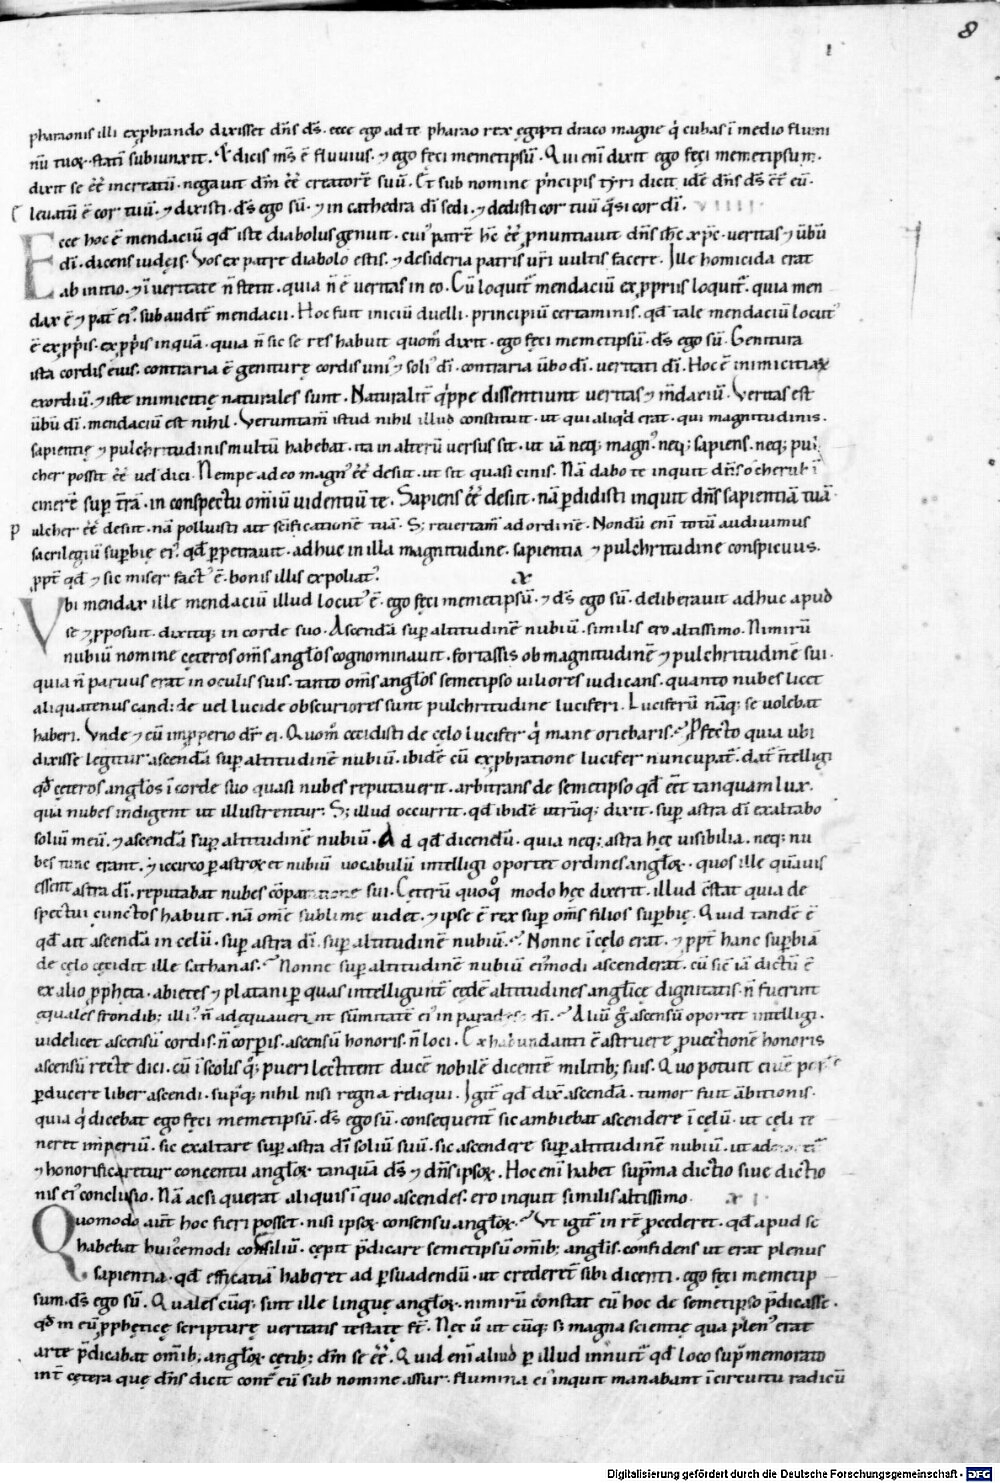 8
pharaonis illi exp̄brando dixisset dn̄s ds̄. ecce ego ad te pharao rex ęgipti draco magne q̇ cubas ī medio flumi
nū tuoꝝ. statī subiunxit. Et dicis ms̄ ē fluvius. ⁊ ego fęci memetipsū. Qui enī dixit ego fęci memetipsum.
dixit se ēē increatū. negavit dm̄ ēē creatorē suū. Et sub nomine p̄ncipis tyri dicit idē dn̄s ds̄ Et ēē eū.
levatū ē cor tuū. ⁊ dixisti. ds̄ ego sū. ⁊ in cathedra dī sedi. ⁊ dedisti cor tuū q̄si cor dī. VIIII.
Ecce hoc ē mendaciū qd̄ iste diabolus genuit. cui' patrē hc̄ ēē p̄nuntiavit dn̄s ih̄c xp̄c. veritas ⁊ v̄bū
dī. dicens iudęis. Vos ex patre diabolo estis. ⁊ desideria patris vr̄i vultis facere. Ille homicida erat
ab initio. ⁊ ī veritate n̄ stetit. quia n̄ ē veritas in eo. Cū loquit̄ mendaciū ex p̄priis loquit̄. quia men
dax ē ⁊ pat̄ ei'. subaudit̄ mendacii. Hoc fuit iniciū duelli. principiū certaminis. qd̄ tale mendaciū locut'
ē ex p̄p̄is. ex p̄p̄is inquā. quia n̄ sic se res habuit quom̄ dixit. ego fęci memetipsū. ds̄ ego sū. Genitura
ista cordis eius. contraria ē geniturę cordis uni' ⁊ soli' dī. contraria v̄bo dī. veritati dī. Hoc ē inimicitiaꝝ
exordiū. ⁊ iste inimicitię naturales sunt. Naturalit̄ q̇ppe dissentiunt veritas ⁊ m̄daciū. Veritas est
v̄bū dī. mendaciū est nihil. Veruntam̄ istud nihil illud constituit. ut qui aliqd erat. qui magnitudinis.
sapientię ⁊ pulchritudinis multū habebat. ita in alterū versus sit. ut iā neq; magn' neq; sapiens. neq; pul
cher possit ēē vel dici. Nempe adeo magn' ēē desiit. ut sit quasi cinis. Nā dabo te inquit dn̄s o cherub ī
cinerē sup̄ tr̄rā. in conspectu om̄iū videntiū te. Sapiens ēē desiit. nā p̄didisti inquit dn̄s sapientiā tuā.
pulcher ēē desiit. nā polluisti ait sc̄ificationē tuā. S; revertam̄ ad ordinē. Nondū enī totū audivimus
sacrilegiū sup̄bię ei'. qd̄ p̄petravit. adhuc in illa magnitudine. sapientia ⁊ pulchritudine conspicuus.
p̄pt̄ qd̄ ⁊ sic miser fact' ē. bonis illis expoliat'. X
Vbi mendax ille mendaciū illud locut' ē. ego fęci memetipsū. ⁊ ds̄ ego sū. deliberavit adhuc apud
se ⁊ p̄posuit. dixitq; in corde suo. Ascendā sup̄ altitudinē nubiū. similis ero altissimo. Nimirū
nubiū nomine cęteros om̄s angl̄os cognominavit. fortassis ob magnitudinē ⁊ pulchritudinē sui.
quia n̄ parvus erat in oculis suis. tanto om̄s angl̄os semetipso viliores iudicans. quanto nubes licet
aliquatenus candidę vel lucide obscuriores sunt pulchritudine luciferi. Luciferū nāq; se volebat
haberi. Vnde ⁊ cū imp̄perio dr̄ ei. Quom̄ cecidisti de cęlo lucifer q̇ mane oriebaris. P̄fecto quia ubi
dixisse legitur ascendā sup̄ altitudinē nubiū. ibidē cū exp̄bratione lucifer nuncupat̄. dat̄ īntelligi
qd̄ cęteros angl̄os ī corde suo quasi nubes reputaverit. arbitrans de semetipso qd̄ ēēt tanquam lux.
qua nubes indigent ut illustrentur. S; illud occurrit. qd̄ ibidē utrūq; dixit. sup̄ astra dī exaltabo
soliū meū. ⁊ ascendā sup̄ altitudinē nubiū. Ad qd̄ dicendū. quia neq; astra hęc visibilia. neq; nu
bes tunc erant. ⁊ iccirco p̄ astroꝝ et nubiū vocabulū intelligi oportet ordines angl̄oꝝ. quos ille quāvis
essent astra dī. reputabat nubes cōparatione sui. Cęterū quoq; modo hęc dixerit. illud c̄stat quia de
spectui cunctos habuit. nā om̄e sublime videt. ⁊ ipse ē rex sup̄ om̄s filios sup̄bię. Quid tandē ē
qd̄ ait ascendā in celū. sup̄ astra dī. sup̄ altitudinē nubiū. Nonne ī cęlo erat. ⁊ p̄pt̄ hanc sup̄biā
de cęlo cęcidit ille sathanas. Nonne sup̄ altitudinē nubiū ei'modi ascenderat. cū sic̄ iā dictū ē
ex alio p̄pheta. abietes ⁊ platani p̄ quas intelligunt̄ ęędē altitudines anglicę dignitatis. n̄ fuerint
ęquales frondib; illi'. n̄ adęquaverint sūmitatē ei' in paradyso dī. Aliū g̊ ascensū oportet intelligi.
videlicet ascensū cordis. n̄ corp̄is. ascensū honoris. n̄ loci. Ex habundanti ē astruere p̄vectionē honoris
ascensū recte dici. cū ī scolis q̊q; pueri lectitent ducē nobilē dicentē militib; suis. Quo potuit civē
p̄ducere liber ascendi. sup̄q; nihil nisi regna reliqui. Igit̄ qd̄ dix̄ ascendā. tumor fuit ābitionis.
quia q̇ dicebat ego fęci memetipsū. ds̄ ego sū. consequent̄ sic ambiebat ascendere ī cęlū. ut cęli te
neret imperiū. sic exaltare sup̄ astra dī soliū suū. sic ascendere sup̄ altitudinē nubiū. ut
⁊ honorificaretur concentu angl̄oꝝ. tanquā ds̄ ⁊ dn̄s ipsoꝝ. Hoc enī habet sup̄ma dictio sive dictio
nis ei' conclusio. Nā acsi querat aliquis ī quo ascendes. ero inquit similis altissimo. XI.
Quomodo aut̄ hoc fieri posset. nisi ipsoꝝ consensu angl̄oꝝ. Ut igit̄ in rē p̄cederet. qd̄ apud se
habebat hui'cemodi consiliū. cępit p̄dicare semetipsū om̄ib; angl̄is. confidens ut erat plenus
sapientia. qd̄ efficatiā haberet ad p̄suadendū. ut crederet̄ sibi dicenti. ego fęci memetip
sum. ds̄ ego sū. Quales cūq; sint ille linguę angl̄oꝝ. nimirū constat eū hoc de semetipso p̄dicasse.
qd̄ in eū p̄phęticę scripturę veritatis testatę st̄. Nec ū ut cūq; s; magna scientię qua plen' erat
arte p̄dicabat om̄ib; angl̄oꝝ cętib; dm̄ se ēē. Quid enī aliud p̄ illud innuit̄ qd̄ loco sup̄memorato
int̄ cętera quę dn̄s dicit cont̄ eū sub nomine assur. flumina ei' inquit manabant ī circuitu radicū
Digitalisierung gefördert durch die Deutsche Forschungsgemeinschaft - DFG